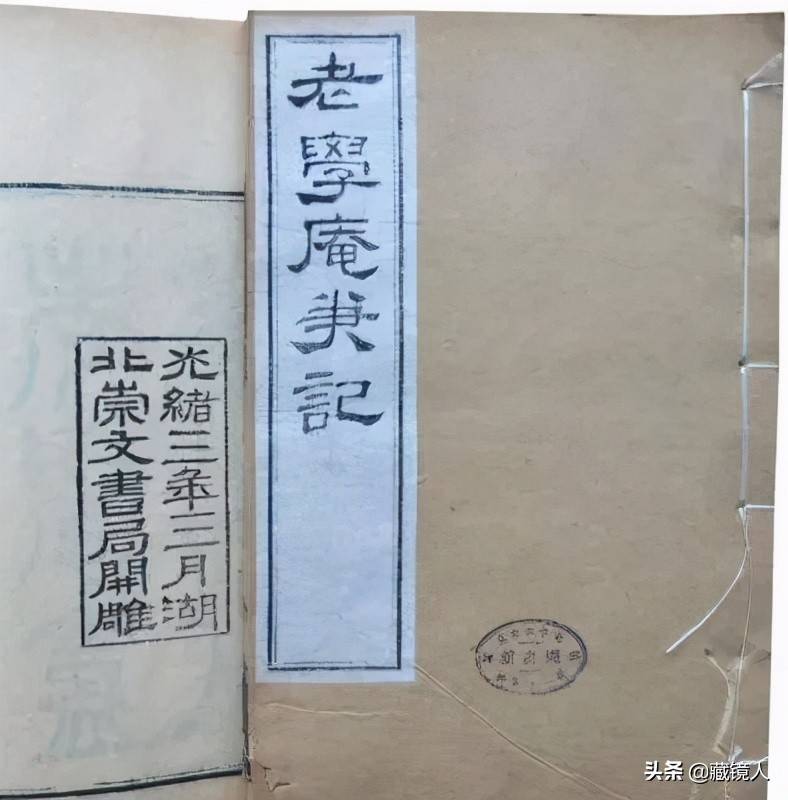 老學庵筆記
光緒三年三月湖
北崇文書局開雕
头条 @藏镜人